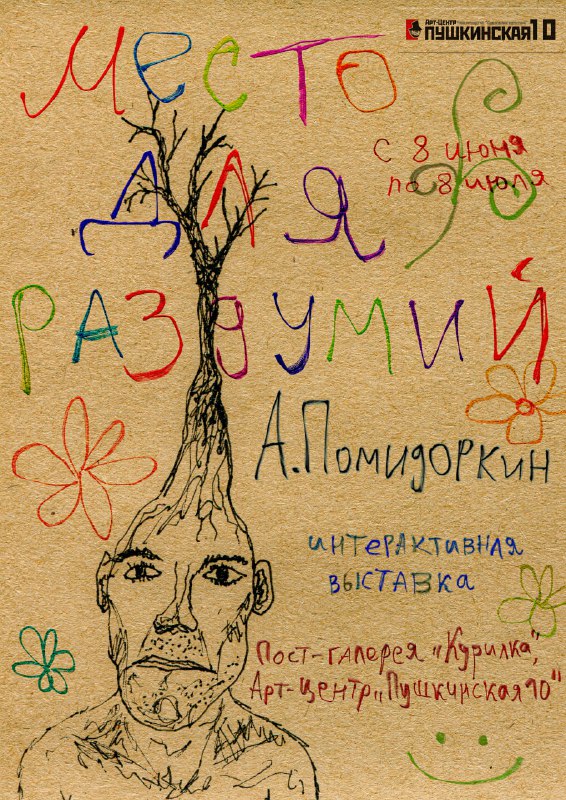 Арт-Центр
ПУШКИНСКАЯ10
МЕСТО
с 8 июня
по 8 июля
ДЛЯ
РАЗДУМИЙ
А.Помидоркин
интерактивная
выставка
Пост-галерея „Курилка",
Арт-центр „Пушкинская 10"